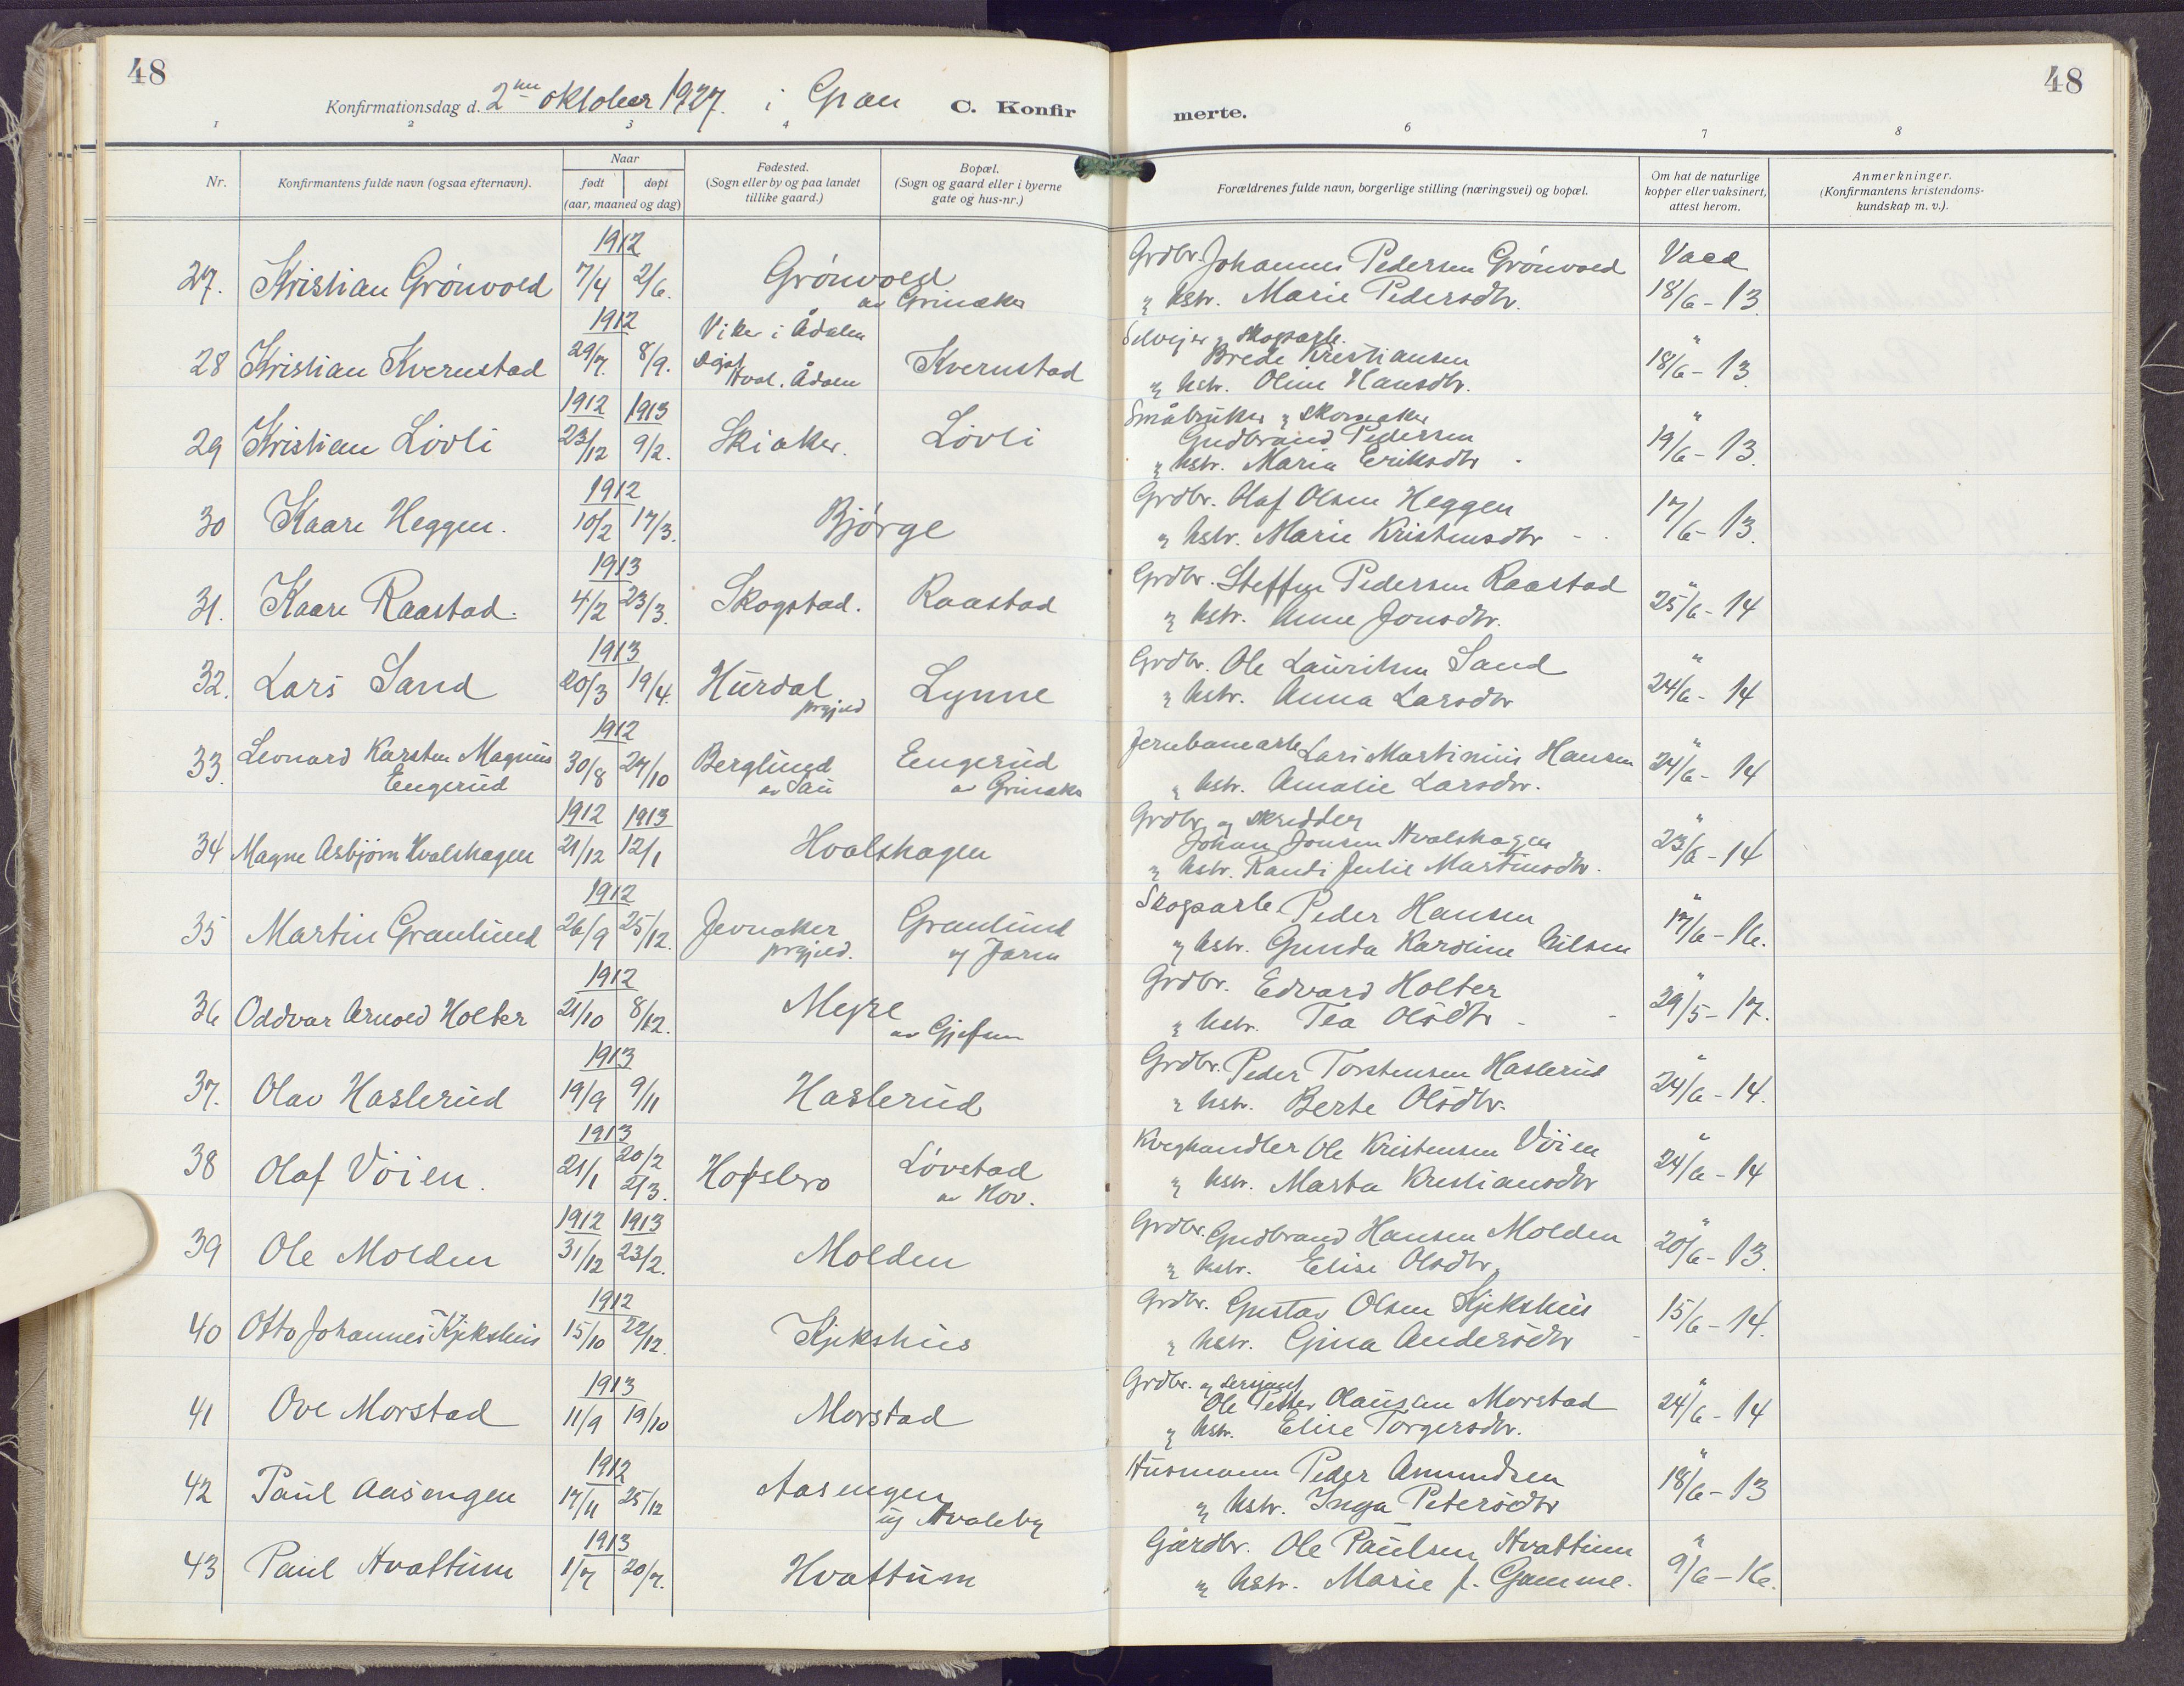 48
Konfirmationsdag d. 2nen oktober 1927. i Gran
C. Konfir
1 2 3 4
Nr.
Konfirmantens fulde navn (ogsaa efternavn).
Naar
født døpt
(aar, maaned og dag)
Fødested.
(Sogn eller by og paa landet
tillike gaard.)
Bopæl.
(Sogn og gaard eller i byerne
gate og hus-nr.)
1912
27. Kristian Grönvold 7/4 2/6. Grönvold
av Grinaker
1912
Viker i Ådalen
28 Kristian Kvernstad 29/7. 8/9. Kvernstad
Hval. Ådalen
1912 1913
29 Kristian Lövli 23/12 9/2. Skiaker. Lövli
1912
30 Kaare Heggen. 10/2 17/3. Bjørge
1913
31. Kaare Raastad. 4/2 23/3. Skogstad. Raastad
1913
32. Lars Sand 20/3 19/4. Hurdal Lynne
prgjeld
1912
33. Leonard Karsten Magnus 30/8 27/10 Berglund Engerud
Engerud av Sau av Grinaker
1912 1913
34 Magne Asbjørn Hvalshagen 21/12 12/1 Hvalshagen
1912
35 Martin Granlund 26/9 25/12. Jevnaker Granlund
prgjeld. af Jaren
1912
36 Oddvar Arnold Holter 21/10 8/12. Meyre
av Gjefsen
1913
37. Olav Haslerud 19/9 9/11 Haslerud
1913
38 Olaf Vöien. 21/1 20/2 Hofsbro Lövstad
2/3. av Hov.
1912 1913
39 Ole Molden 31/12 23/2. Molden
1912
40 Otto Johannes Kjekshus 15/10 22/12. Kjekshus
1913
41 Ove Morstad 11/9 19/10 Morstad
1912
42 Paul Aasengen 17/11 25/12 Aasengen
u/ Hvaleby
1913
43 Paul Hvattum 1/7 20/7. Hvattum
48
merte.
6 7 8
Forældrenes fulde navn, borgerlige stilling (næringsvei) og bopæl.
Om hat de naturlige
kopper eller vaksinert,
attest herom.
Anmerkninger.
(Konfirmantens kristendoms-
kundskap m. v.).
Grdbr. Johannes Pedersen Grönvold Vacc
og hstr. Marie Pedersdtr. 18/6 - 13.
Selveier og skogsarb.
Brede Kristiansen " 18/6 - 13.
og hstr. Oline Hansdtr.
Småbruker og skomaker
Gudbrand Pedersen " 19/6 - 13.
og hstr. Maria Eriksdtr
Grdbr. Olaf Olsen Heggen
og hstr. Marie Kristensdtr 17/6 - 13.
Grdbr. Steffen Pedersen Raastad
og hstr. Anne Jonsdtr. " 25/6 - 14
Grdbr. Ole Lauritsen Sand
og hstr. Anna Larsdtr " 24/6 - 14
Jernbanearb. Lars Martinius Hansen
og hstr. Amalie Larsdtr. " 24/6 - 14
Grdbr. og skredder
Johan Jonsen Hvalshagen " 23/6 - 14
og hstr. Randi Julie Martinsdtr.
Skogsarb. Peder Hansen
og hstr. Gunda Karoline Nilsen " 17/6 - 16.
Grdbr. Edvard Holter
og hstr. Tea Olsdtr " 29/5 - 17.
Grdbr. Peder Torstensen Haslerud
og hstr. Berte Olsdtr. " 24/6 - 14.
Kveghandler Ole Kristensen Vöien
og hstr. Marta Kristiansdtr " 24/6 - 14
Grdbr. Gudbrand Hansen Molden
og hstr. Elise Olsdtr. " 20/6 - 13.
Grdbr. Gustav Olsen Kjekshus
og hstr. Gina Andersdtr 15/6 - 14.
Grdbr. og sersjant
Ole Petter Olausen Morstad " 24/6 - 14
og hstr. Elise Torgersdtr.
Husmann Peder Amundsen
og hstr. Inga Petersdtr " 18/6 - 13
Gårdbr. Ole Paulsen Hvattum
og hstr. Marie f. Gamme. " 9/6 - 16.